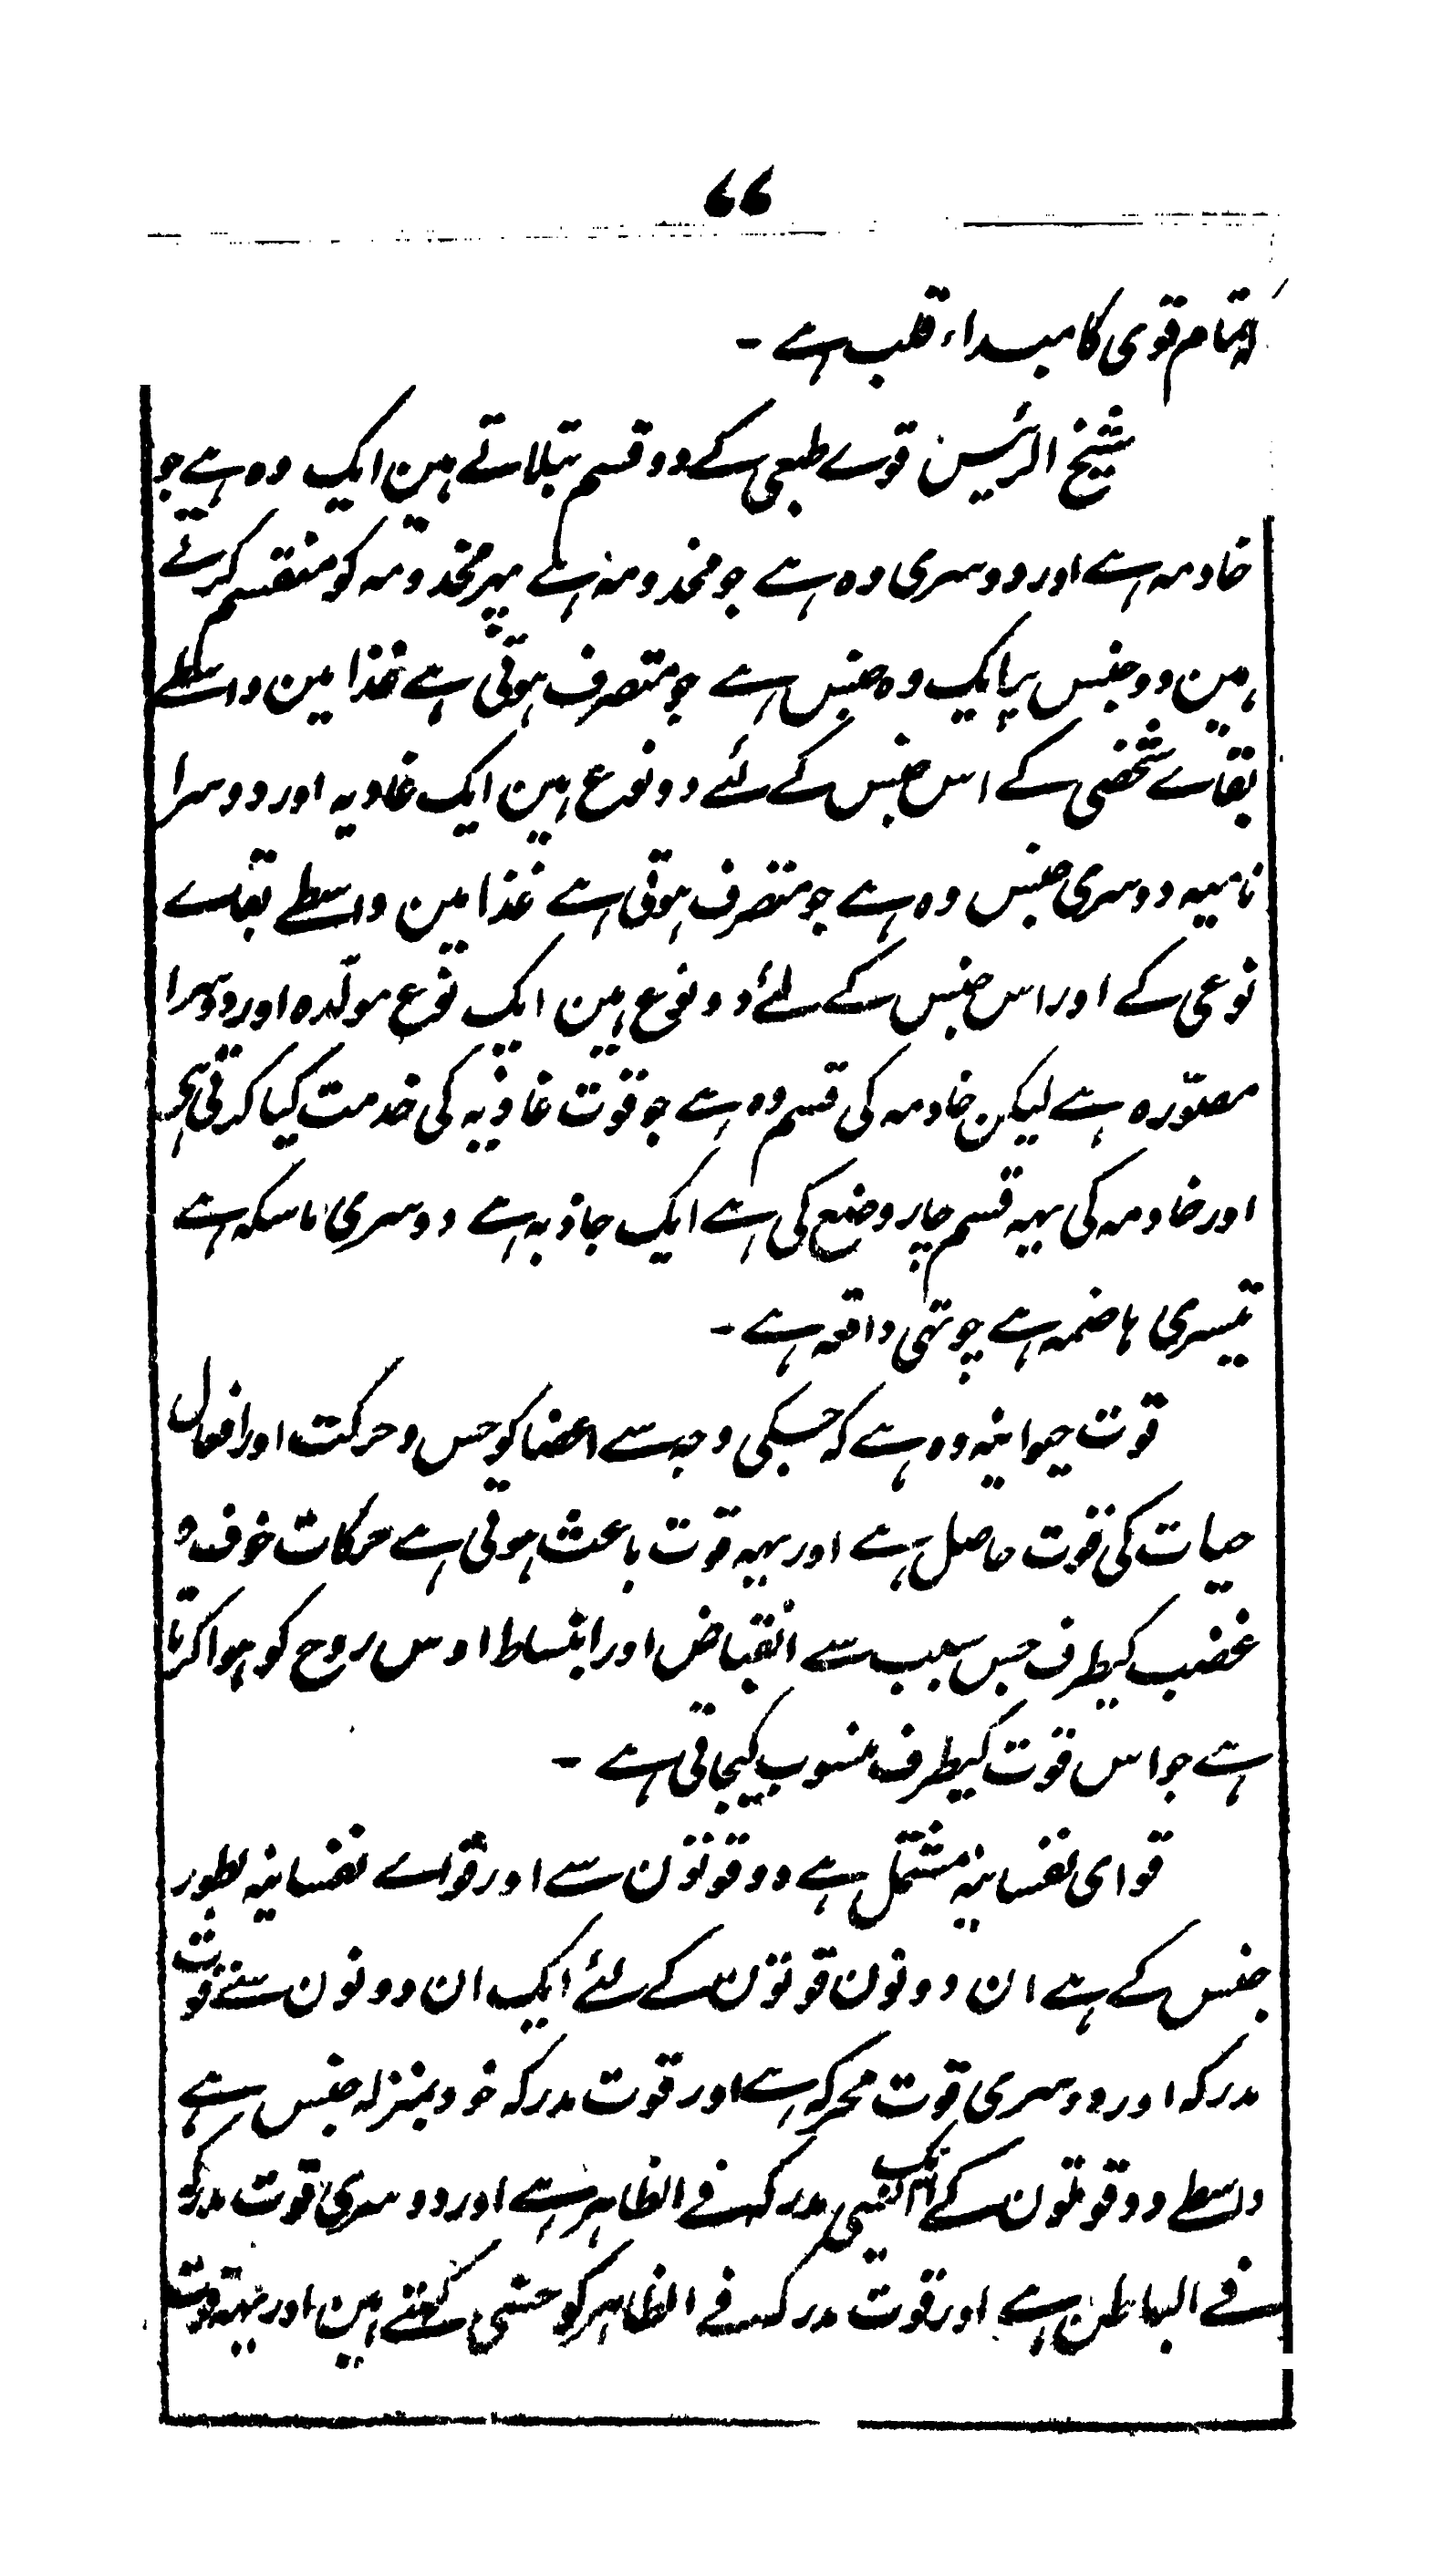 ۷۷
تمام قوی کا مبداء قلب ہے -
شیخ الرئیس قوے طبعی کے دو قسم بتلاتے ہین ایک وہ ہے جو
خادمہ ہے اور دوسری وہ ہے جو مخدومہ ہے پہر مخدومہ کو منقسم کرتے
ہین دو جنس پر ایک وہ جنس ہے جو متصرف ہوتی ہے غذا مین واسطے
بقاے شخصی کے اس جنس کے لئے دو نوع ہین ایک غاذیہ اور دوسرا
نامیہ دوسری جنس وہ ہے جو متصرف ہوتی ہے غذا مین واسطے بقاے
نوعی کے اور اس جنس کے لئے دو نوع ہین ایک نوع مولّدہ اور دوسرا
مصوّرہ ہے لیکن خادمہ کی قسم وہ ہے جو قوت غاذیہ کی خدمت کیا کرتی ہی
اور خادمہ کی یہہ قسم چار وضع کی ہے ایک جاذبہ ہے دوسری ماسکہ ہے
تیسری ہاضمہ ہے چوتہی دافعہ ہے -
قوت حیوانیہ وہ ہے کہ جسکی وجہ سے اعضا کو حس و حرکت اور افعال
حیات کی قوت حاصل ہے اور یہہ قوت باعث ہوتی ہے حرکات خوف و
غضب کیطرف جس سبب سے انقباض اور انبساط اوس روح کو ہوا کرتا
ہے جو اس قوت کیطرف منسوب کیجاتی ہے -
قوای نفسانیہ مشتمل ہے دو قوتون سے اور قواے نفسانیہ بطور
جنس کے ہے ان دونون قوتون کے لئے ایک ان دونون سے قوت
مدرکہ اور دوسری قوت محرکہ ہے اور قوت مدرکہ خود بمنزلہ جنس ہے
واسطے دو قوتون کے ایک مدرکہ فے الظاہر ہے اور دوسری قوت مدرکہ
فے الباطن ہے اور قوت مدرکہ فے الظاہر کو حسّی کہتے ہین اور یہہ قوت